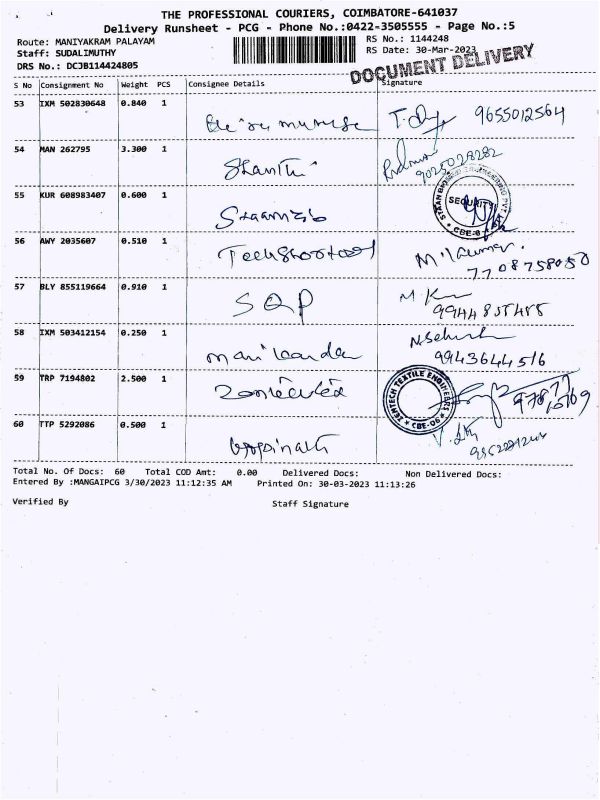 THE PROFESSIONAL COURIERS, COIMBATORE-641037
Delivery Runsheet - PCG - Phone No.:0422-3505555 - Page No.:5
Route: MANIYAKRAM PALAYAM
RS No.: 1144248
Staff: SUDALIMUTHY
RS Date: 30-Mar-2023
DRS No.: DCJB114424805
DOCUMENT DELIVERY
S No Consignment No Weight PCS Consignee Details Signature
53 IXM 502830648 0.840 1 9655012564
54 MAN 262795 3.300 1 Shanthi 9025028282
55 KUR 608983407 0.600 1 SECURITY CBE-6
56 AWY 2035607 0.510 1 M. 7708758050
57 BLY 855119664 0.910 1 SQP M 9944855485
58 IXM 503412154 0.250 1 9943644516
59 TRP 7194802 2.500 1 ZENTECH TEXTILE ENGINEERS CBE-06
60 TTP 5292086 0.500 1 Gopinath
Total No. Of Docs: 60 Total COD Amt: 0.00 Delivered Docs: Non Delivered Docs:
Entered By :MANGAIPCG 3/30/2023 11:12:35 AM Printed On: 30-03-2023 11:13:26
Verified By Staff Signature